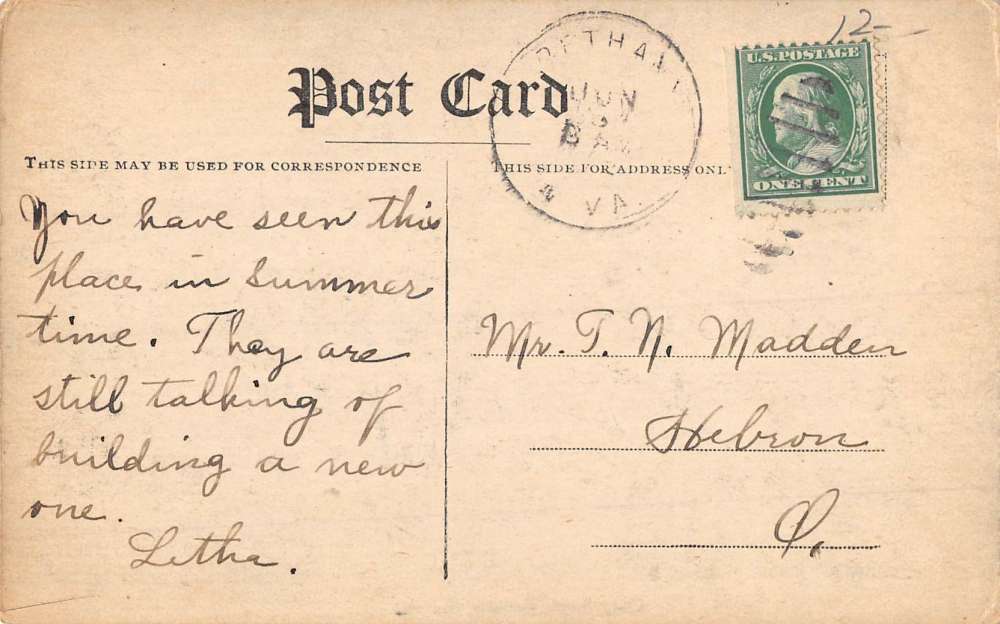 12-
Post Card
U.S. POSTAGE
ONE CENT
JUN
8 AM
VA.
THIS SIDE MAY BE USED FOR CORRESPONDENCE
THIS SIDE FOR ADDRESS ONL
You have seen this
place in summer
time. They are
still talking of
building a new
one.
Letha.
Mr. T. N. Madden
Hebron
O.